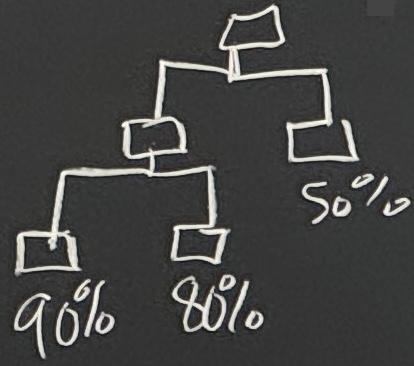 50%
90% 80%